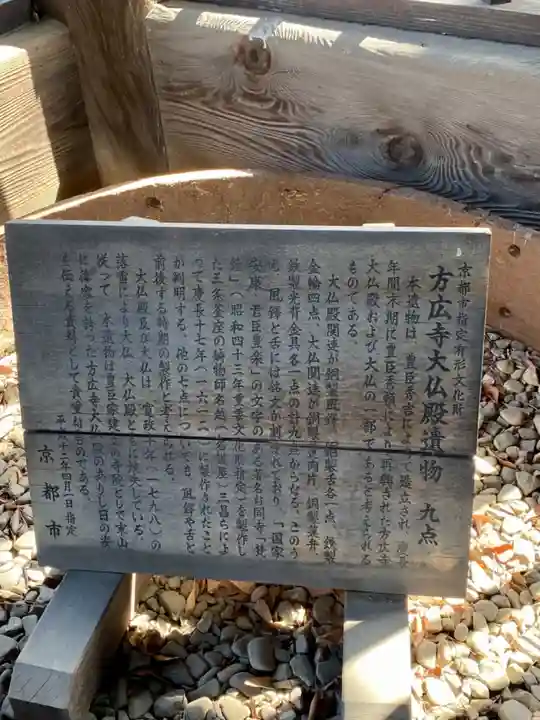 京都市指定有形文化財
方広寺大仏殿遺物 九点
本遺物は、豊臣秀吉によって造立され、慶長
年間末期に豊臣秀頼により再興された方広寺
大仏殿および大仏の一部であると考えられる
ものである。
大仏殿関連が銅製風鐸、銅製舌各一点、鉄製
金輪四点、大仏関連が銅製
鉄製光背金具各一点の計九点からなる。このう
ち、風鐸と舌には銘文が刻まれており、「国家
安康 君臣豊楽」の文字のある著名な同寺「梵
鐘」(昭和四十三年重要文化財指定)を製作し
た三条釜座の鋳物師名越(名護屋)三昌らによ
って慶長十七年(一六一二)に製作されたこと
が判明する。他の七点についても、風鐸や舌と
前後する時期の製作と考えられる。
大仏殿及び大仏は、寛政十年(一七九八)の
落雷により大仏・大仏殿ともに焼失している。
従って、本遺物は豊臣家建立の寺院として東山
に偉容を誇った方広寺大仏殿のありし日の姿
を伝える資料として貴重なものである。
平成十二年四月一日指定
京都市